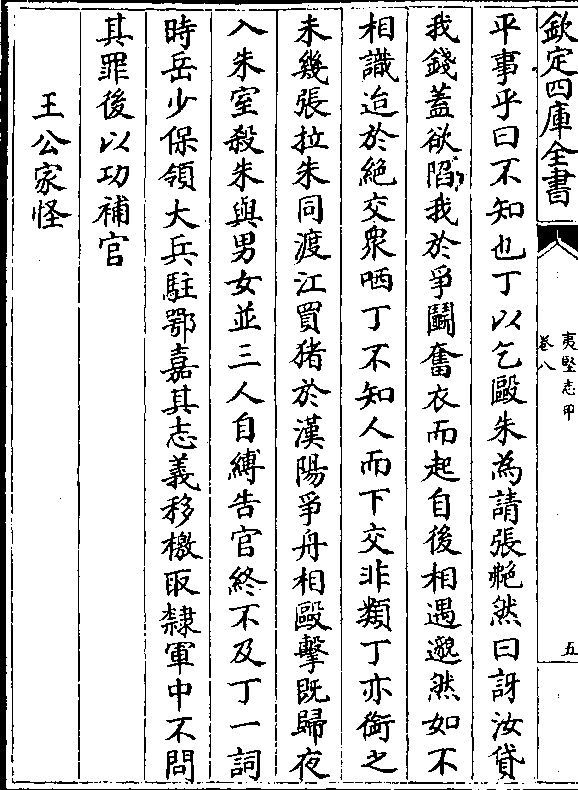 欽定四庫全書
夷堅志甲
卷八
五
平事乎曰不知也丁以乞毆朱為請張艴然曰訝汝貸
我錢蓋欲陷我於爭鬭奮衣而起自後相遇邈然如不
相識迨於絕交衆哂丁不知人而下交非類丁亦銜之
未幾張拉朱同渡江買猪於漢陽爭舟相毆擊既歸夜
入朱室殺朱與男女並三人自縛告官終不及丁一詞
時岳少保領大兵駐鄂嘉其志義移檄取隸軍中不問
其罪後以功補官
王公家怪